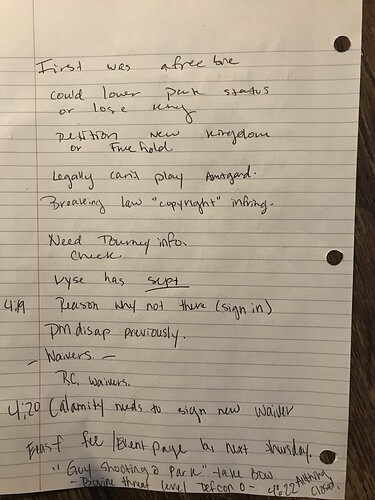 First was a free one
could lower park status
or lose king
petition new kingdom
or Freehold
Legally can't play Amtgard.
Breaking law "copyright" infring.
Need Tourney info.
Check
Vyse has sept
4:19 Reason why not there (sign in)
DM disap previously.
- Waivers -
RC waivers.
4:20 Calamity needs to sign new waiver
Feast fee /Event page by next thursday.
"Guy shooting @ park" - take Bow
- threat level Defcon 0 - 4:22 Althing Closed.